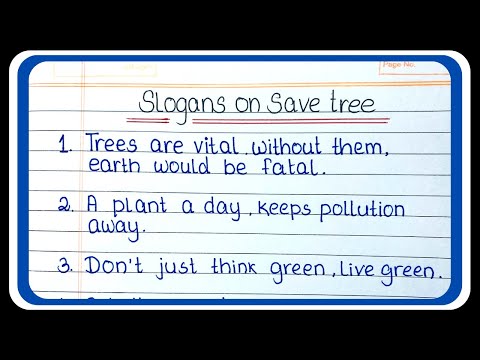 Page No.
Slogans on Save tree
1. Trees are vital, without them,
earth would be fatal.
2. A plant a day, keeps pollution
away.
3. Don't just think green, Live green.